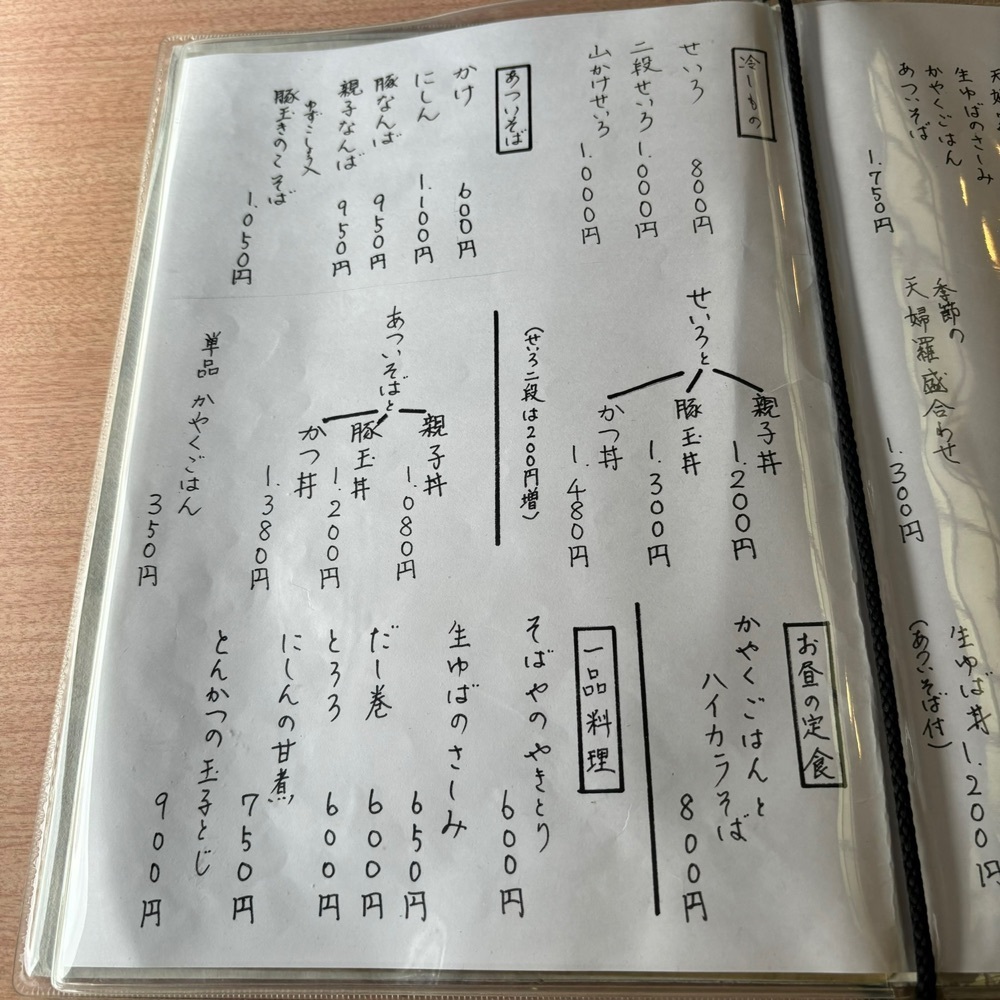 天婦
生ゆばのさしみ
かやくごはん
あついそば
1.750円
季節の
天婦羅盛合わせ
1.300円
生ゆば丼 1.200円
(あついそば付)
冷しもの
せいろ 800円
二段せいろ 1.000円
山かけせいろ 1.000円
あついそば
かけ 600円
にしん 1.100円
豚なんば 950円
親子なんば 950円
ゆずこしょう入
豚玉きのこそば
1.050円
せいろと
親子丼 1.200円
豚玉丼 1.300円
かつ丼 1.480円
(せいろ二段は200円増)
あついそばと
親子丼 1.080円
豚玉丼 1.200円
かつ丼 1.380円
単品 かやくごはん
350円
お昼の定食
かやくごはんと
ハイカラそば
800円
一品料理
そばやのやきとり
600円
生ゆばのさしみ
650円
だし巻 600円
とろろ 600円
にしんの甘煮
750円
とんかつの玉子とじ
900円